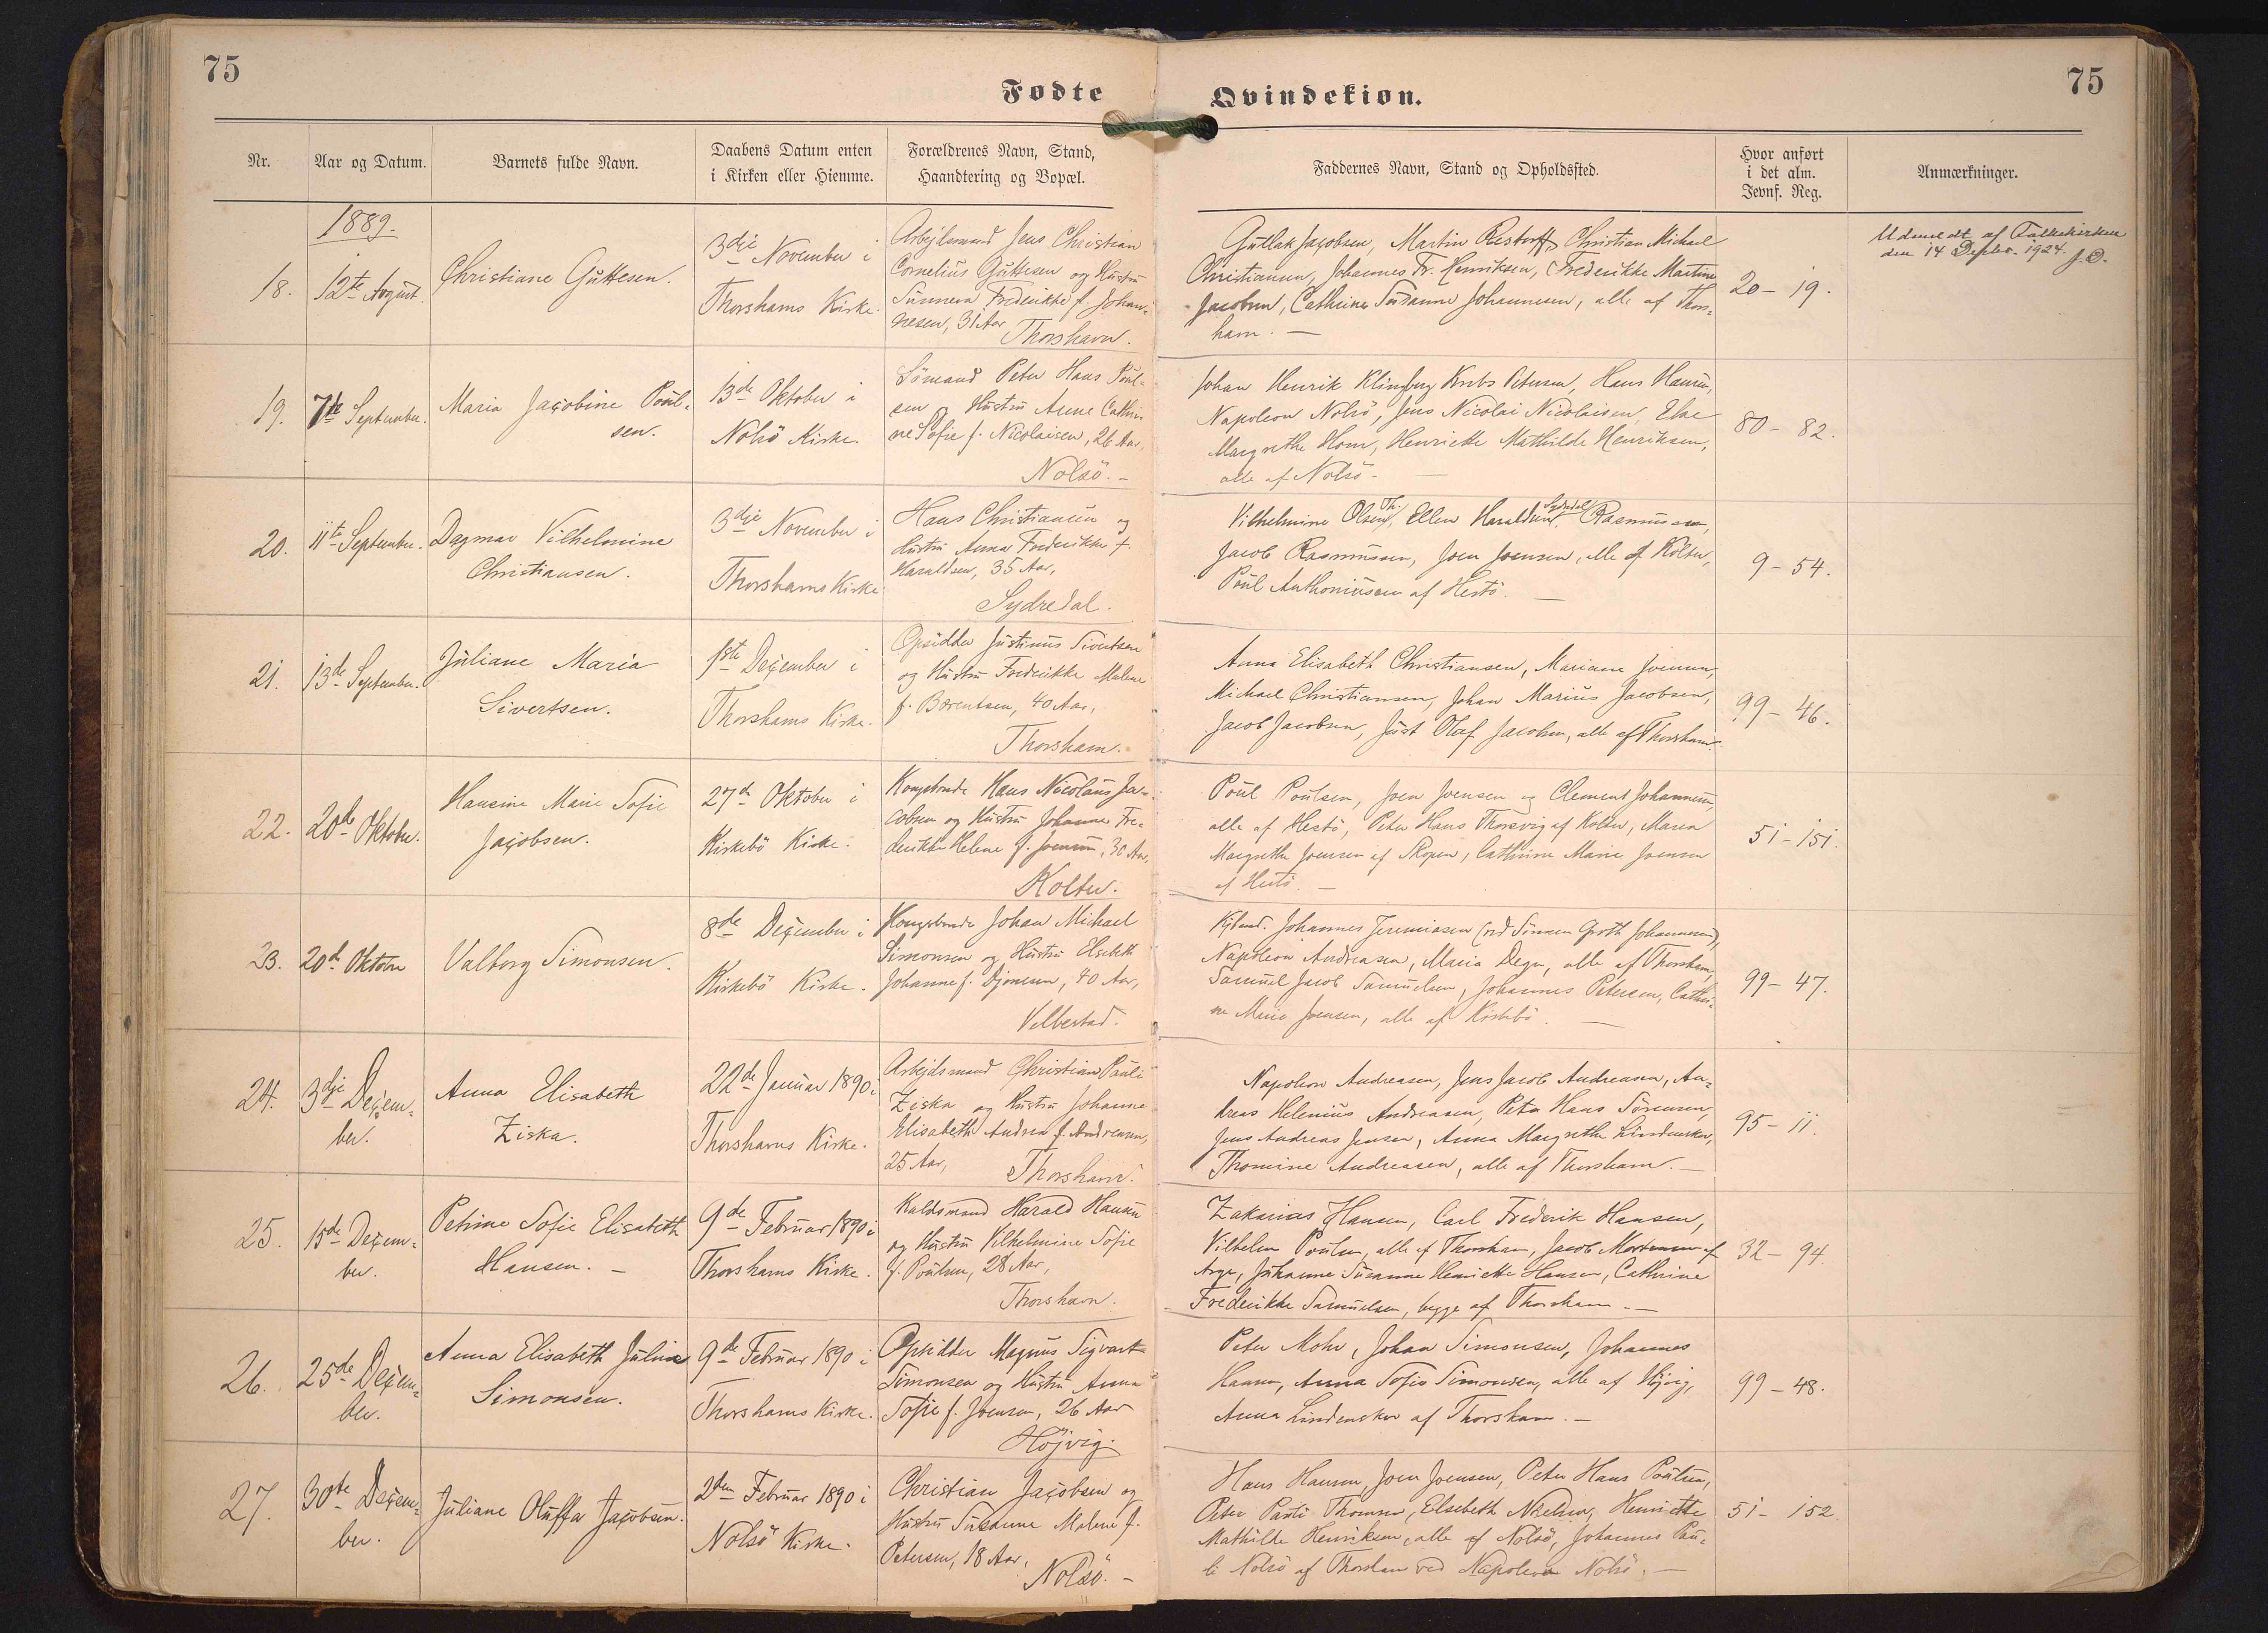 75
75
Fødte
Qvindekiøn.
Nr.
Aar og Datum.
Barnets fulde Navn.
Daabens Datum enten
i Kirken eller Hiemme.
Forældrenes Navn, Stand,
Haandtering og Bopæl.
Faddernes Navn, Stand og Opholdssted.
Hvor anført
i det alm.
Jevnf. Reg.
Anmærkninger.
1889.
18.
12te August.
Christiane Guttesen.
3dje November i
Thorshavns Kirke.
Arbejdsmand Jens Christian
Cornelius Guttesen og Hustru
Sunneva Frederikke f. Johan-
nesen, 31 Aar
Thorshavn.
Gutlak Jacobsen, Martin Restorff, Christian Michael
Christiansen, Johannes Fr. Henriksen, Frederikke Martine
Jacobsen, Cathrine Susanne Johannesen, alle af Thors-
havn. —
20 - 19.
Udmeldt af Folkekirken
den 14 Septbr. 1924. J.D.
19.
7de September.
Maria Jacobine Poul-
sen.
13de Oktober i
Nolsö Kirke
Sömand Peter Hans Poul-
sen og Hustru Anne Cathri-
ne Sofie f. Nicolaisen, 26 Aar,
Nolsö. -
Johan Henrik Klingberg Petersen, Hans Hansen,
Napoleon Nolsö, Jens Nicolai Nicolaisen, Else
Margrethe Hom, Henriette Mathilde Henriksen,
alle af Nolsö. —
80 - 82.
20.
11te September.
Dagmar Vilhelmine
Christiansen.
3dje November i
Thorshavns Kirke
Hans Christiansen og
Hustru Anna Frederikke f.
Haraldsen, 35 Aar,
Sydredal.
Vilhelmine Olsen, Th. Ellen Haraldsen, Sydredal Rasmussen,
Jacob Rasmussen, Joen Joensen, alle af Kolter,
Poul Anthoniussen af Hestö. —
9 - 54.
21.
13de September.
Juliane Maria
Sivertsen.
1ste December i
Thorshavns Kirke.
Opsidder Justinus Sivertsen
og Hustru Frederikke Malene
f. Barentsen, 40 Aar,
Thorshavn.
Anna Elisabeth Christiansen, Mariane Joensen,
Michael Christiansen, Johan Marius Jacobsen,
Jacob Jacobsen, Just Olaf Jacobsen, alle af Thorshavn.
99 - 46.
22.
20de Oktober.
Hansine Marie Sofie
Jacobsen.
27de Oktober i
Kirkebö Kirke.
Kongsbonde Hans Nicolaus Ja-
cobsen og Hustru Johanne Fre-
derikke Helene f. Joensen, 30 Aar,
Kolter.
Poul Poulsen, Joen Joensen og Clement Johannesen,
alle af Hestö, Peter Hans Thorsvig af Kolter, Maren
Margrethe Joensen af Skopen, Cathrine Marie Joensen
af Hestö. —
51 - 151.
23.
20de Oktober
Valborg Simonsen.
8de December i
Kirkebö Kirke.
Kongsbonde Johan Michael
Simonsen og Hustru Elsebeth
Johanne f. Djonesen, 40 Aar,
Velbestad.
Kjbmd. Johannes Jeremiasen (ved Simon Groth Johannesen),
Napoleon Andreasen, Maria Degn, alle af Thorshavn,
Samuel Jacob Samuelsen, Johannes Petersen, Cathri-
ne Marie Joensen, alle af Kirkebö. —
99 - 47.
24.
3dje Decem-
ber.
Anna Elisabeth
Ziska.
22de Januar 1890 i
Thorshavns Kirke.
Arbejdsmand Christian Pauli
Ziska og Hustru Johanne
Elisabeth Andrea f. Andreasen,
25 Aar,
Thorshavn.
Napoleon Andreasen, Jens Jacob Andreasen, An-
dreas Helenius Andreasen, Peter Hans Sörensen,
Jens Andreas Jensen, Anna Margrethe Lindenskov,
Thomine Andreasen, alle af Thorshavn. —
95 - 11.
25.
15de Decem-
ber.
Petrine Sofie Elisabeth
Hansen. —
9de Februar 1890 i
Thorshavns Kirke.
Kuldsmand Harald Hansen
og Hustru Vilhelmine Sofie
f. Poulsen, 28 Aar,
Thorshavn.
Zakarias Hansen, Carl Frederik Hansen,
Vilhelm Poulsen, alle af Thorshavn, Jacob Mortensen af
Arge, Johanne Susanne Henriette Hansen, Cathrine
Frederikke Samuelsen, begge af Thorshavn. —
32 - 94.
26.
25de Decem-
ber.
Anna Elisabeth Juline
Simonsen.
9de Februar 1890 i
Thorshavns Kirke.
Opsidder Magnus Sigvart
Simonsen og Hustru Anna
Sofie f. Joensen, 26 Aar
Höjvig.
Peter Mohr, Johan Simonsen, Johannes
Hansen, Anna Sofie Simonsen, alle af Höjvig,
Anna Lindenskov af Thorshavn. —
99 - 48.
27.
30te Decem-
ber.
Juliane Oluffa Jacobsen.
2den Februar 1890 i
Nolsö Kirke.
Christian Jacobsen og
Hustru Susanne Malene f.
Petersen, 18 Aar,
Nolsö. -
Hans Hansen, Joen Joensen, Peter Hans Poulsen,
Peter Pauli Thomsen, Elsebeth Nielsen, Henriette
Mathilde Henriksen, alle af Nolsö, Johannes Pau-
li Nolsö af Thorshavn ved Napoleon Nolsö. —
51 - 152.